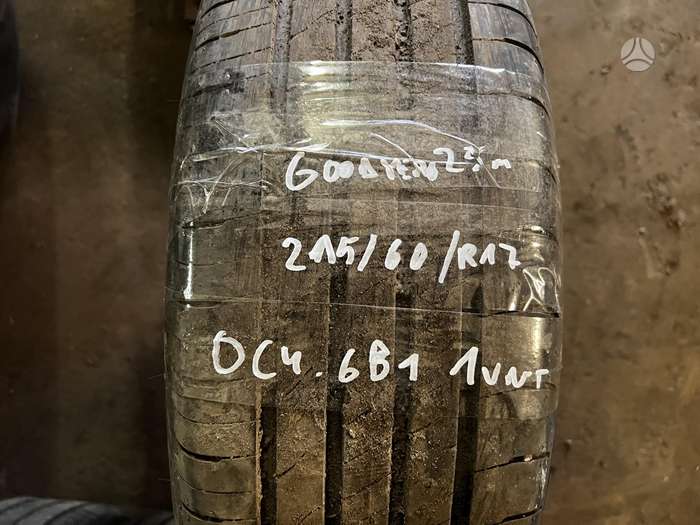 GOODYEAR 22m
215/60/R17
OC4.6B1 1VNT